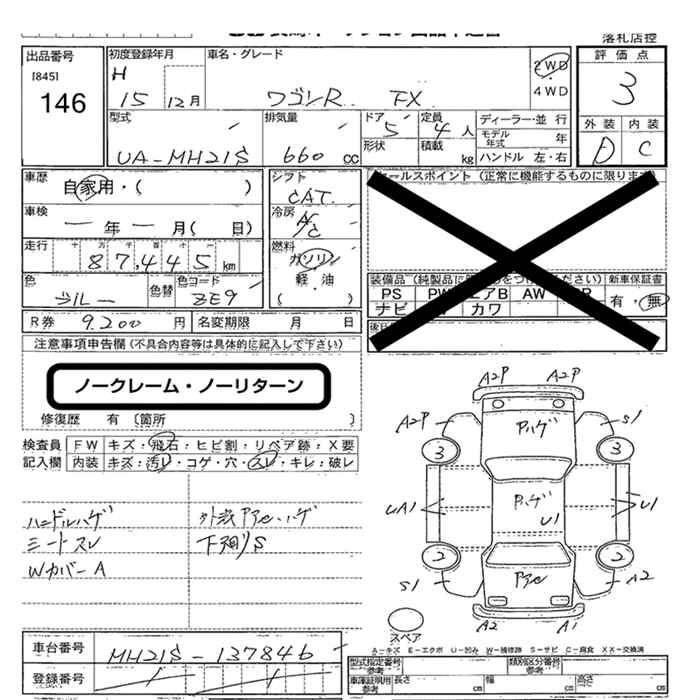 落札店控
出品番号
[845]
146
初度登録年月
H
15 12月
車名・グレード
ワゴンR FX
2WD
・
4WD
評価点
3
型式
UA-MH21S
排気量
660 cc
ドア
5
形状
定員
4 人
積載
kg
ディーラー・並行
モデル年式 年
ハンドル 左・右
外装 内装
D C
車歴
自家用・( )
車検
— 年 — 月( 日)
走行
十 万 千 百 十 一
87,445 km
色
ブルー
色替
色コード
ZE9
シフト
CAT
冷房
A/C
燃料
ガソリン
軽・油
( )
セールスポイント(正常に機能するものに限ります)
新車保証書
有・無
PS AW
ナビ カワ
R券 9.200 円
名変期限 月 日
注意事項申告欄(不具合内容等は具体的に記入して下さい)
ノークレーム・ノーリターン
修復歴 有 〔箇所 〕
検査員
記入欄
FW キズ:飛石:ヒビ割:リペア跡:X要
内装 キズ:汚レ・コゲ・穴・スレ・キレ・破レ
ハンドルハゲ
シートスレ
WカバーA
下廻りS
A2P A2P
A2P Pハゲ S1
3 3
UA1 Pハゲ U1 U1
2 2
S1 A2
A2 A1
スペア
A-キズ E-エクボ U-凹み W-補修跡 S-サビ C-腐食 XX-交換済
車台番号 MH21S-137846
登録番号
型式指定番号
参考
類別区分番号
参考
車庫証明用
参考
長さ cm 幅 cm 高さ cm